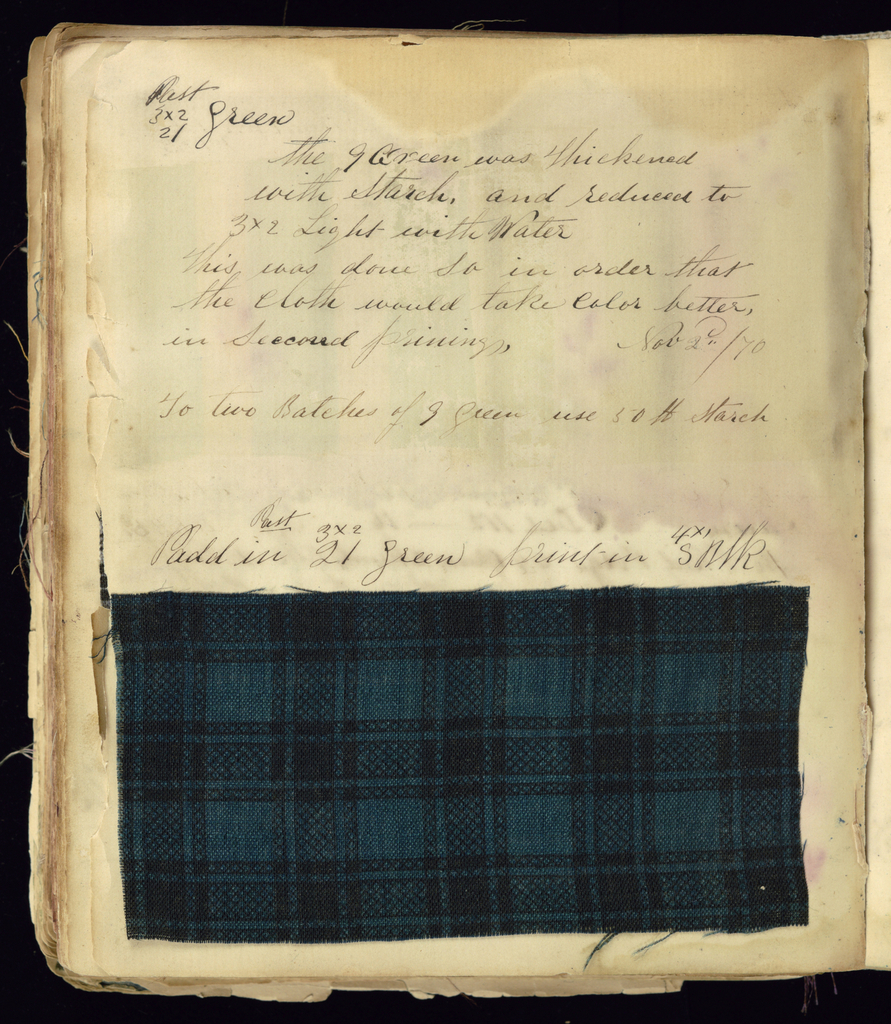 Past
3x2
21 Green
the 9 Green was thickened
with Starch, and reduced to
3x2 Light with Water
This was done so in order that
the Cloth would take Color better,
in Seccond prining, Nov 2d /70
To two Batches of 9 green use 50 lb Starch
Past 3x2 4x1
Padd in 21 green print in S Blk